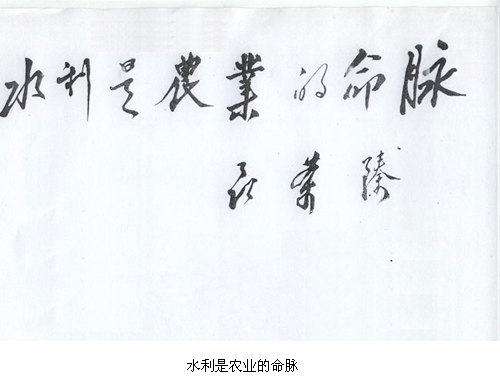 水利是農業的命脉
聂荣臻
水利是农业的命脉